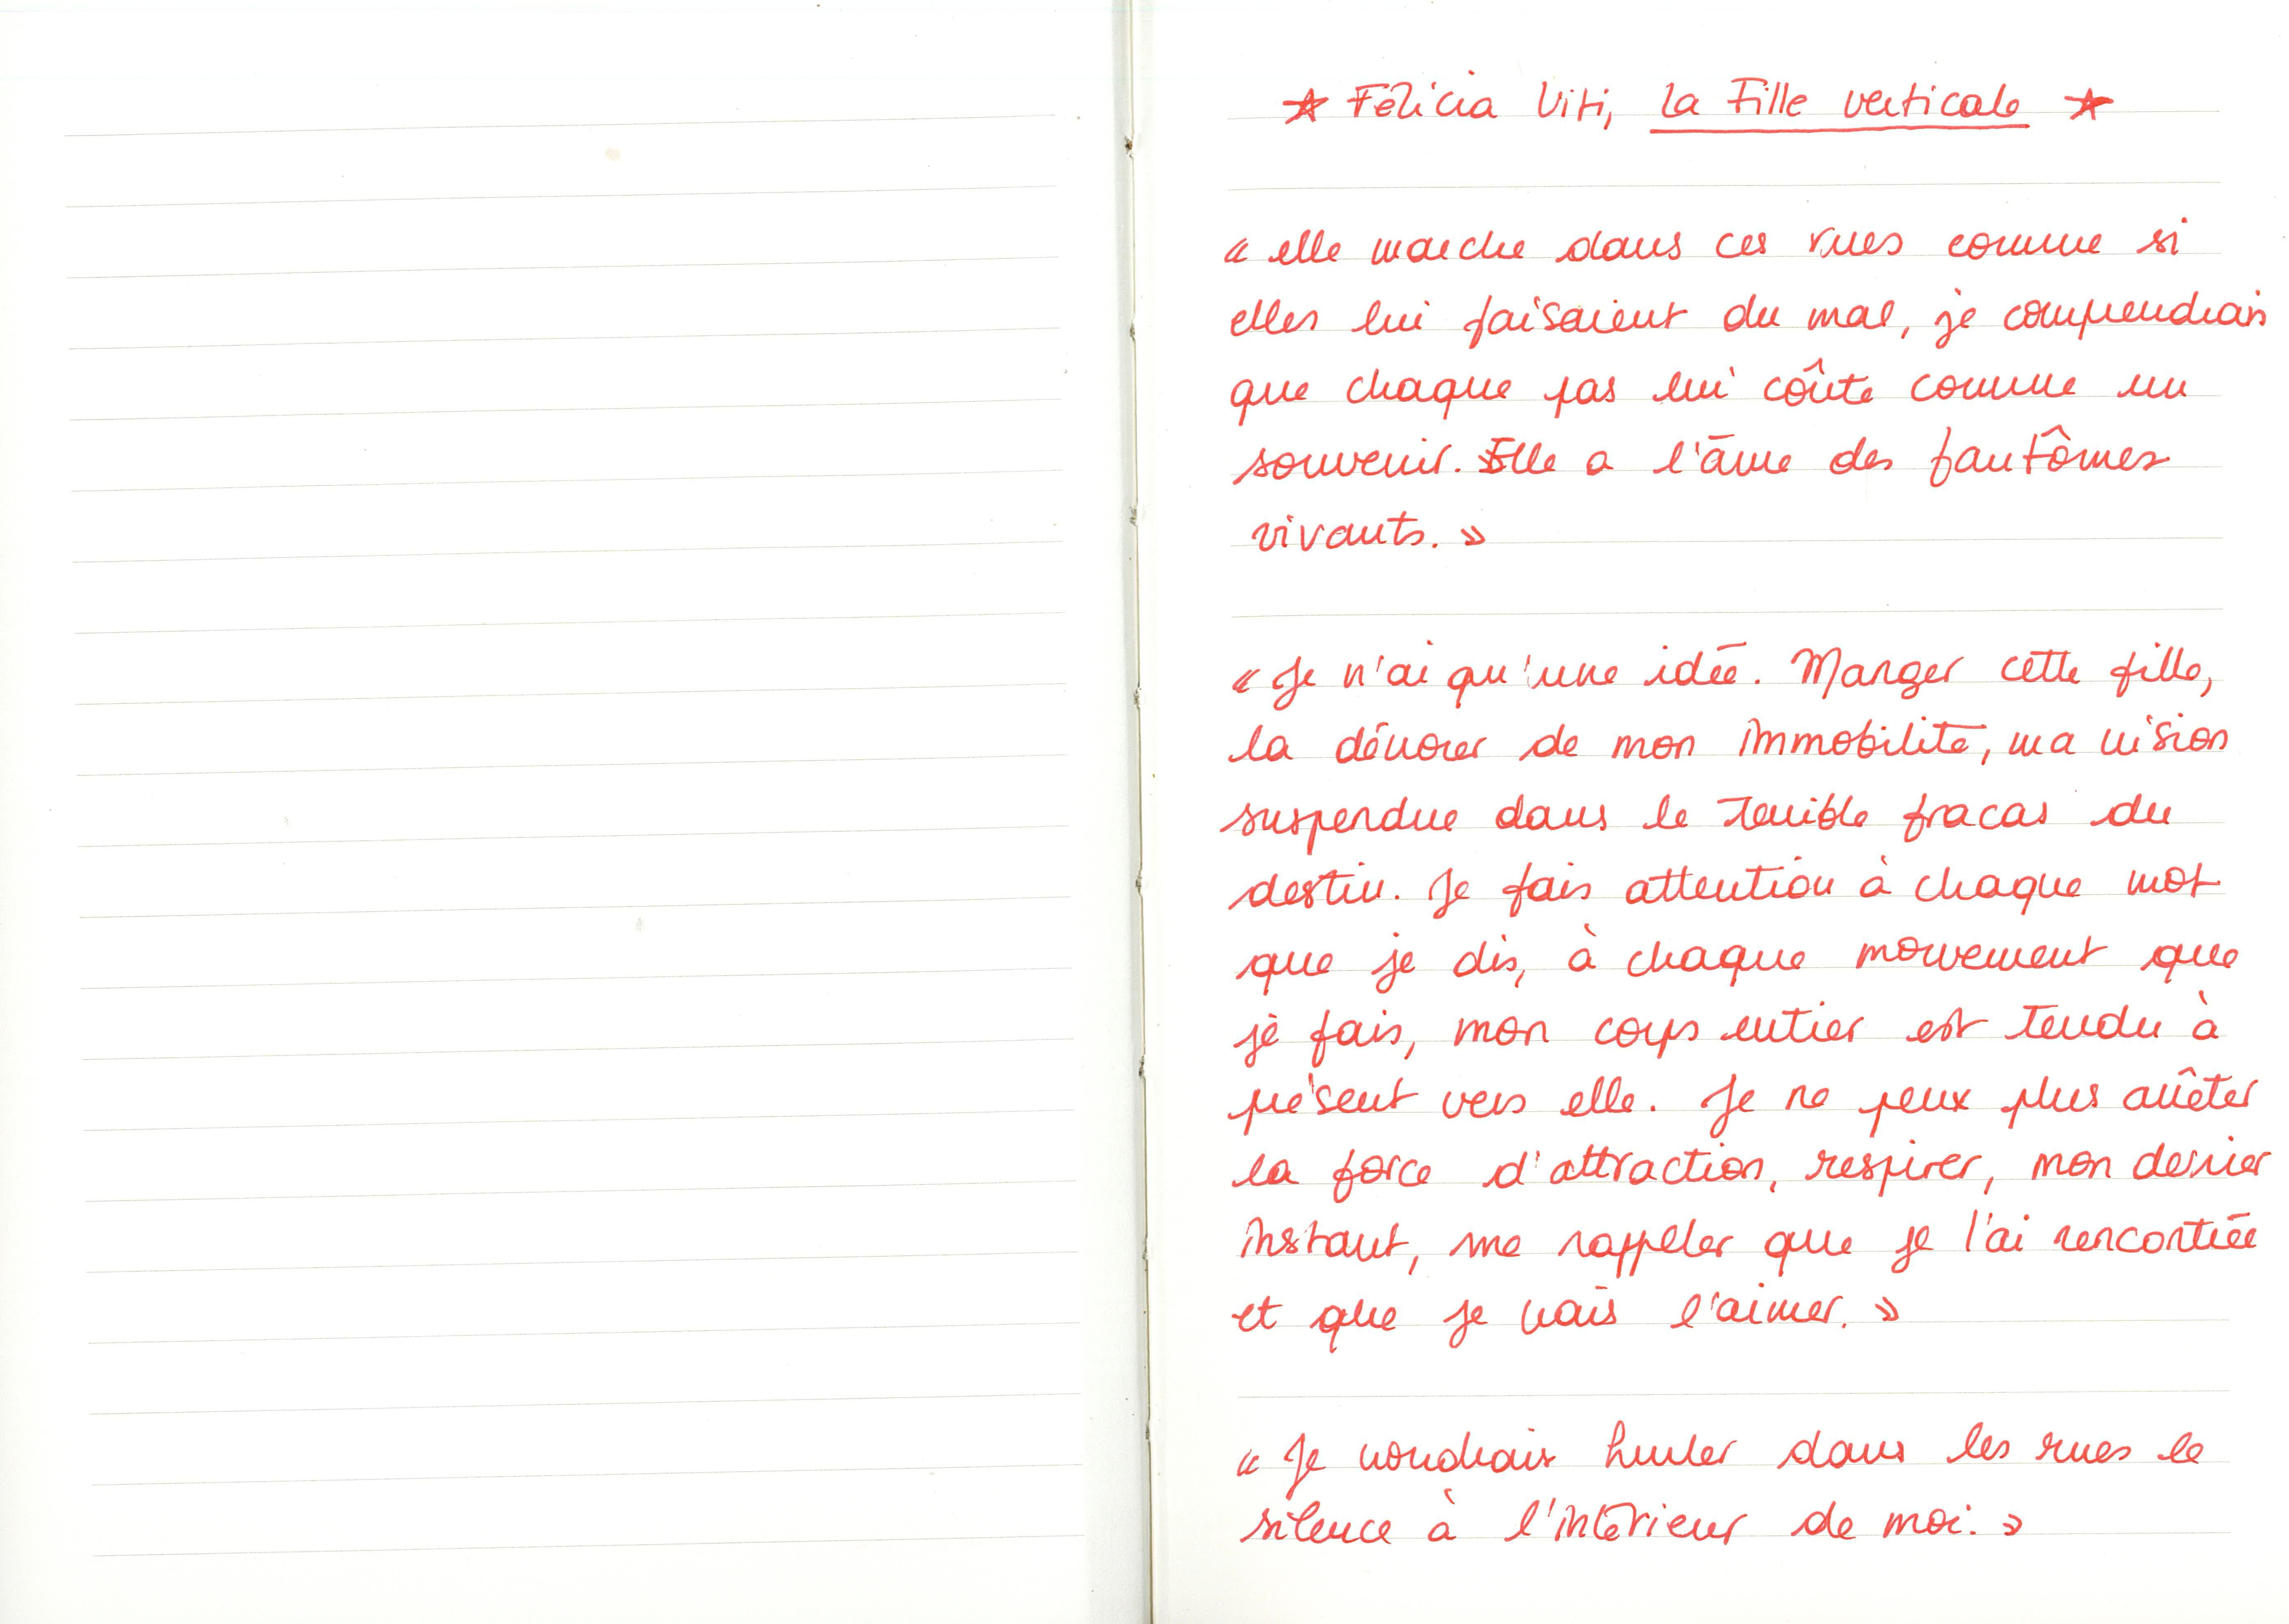 ☆ Félicia Viti, La Fille verticale ☆
« elle marche dans ces rues comme si
elles lui faisaient du mal, je comprendrais
que chaque pas lui coûte comme un
souvenir. Elle a l'âme des fantômes
vivants. »
« Je n'ai qu'une idée. Manger cette fille,
la dévorer de mon immobilité, ma vision
suspendue dans le terrible fracas du
destin. Je fais attention à chaque mot
que je dis, à chaque mouvement que
je fais, mon corps entier est tendu à
présent vers elle. Je ne peux plus arrêter
la force d'attraction, respirer, mon dernier
instant, me rappeler que je l'ai rencontrée
et que je vais l'aimer. »
« Je voudrais hurler dans les rues le
silence à l'intérieur de moi. »